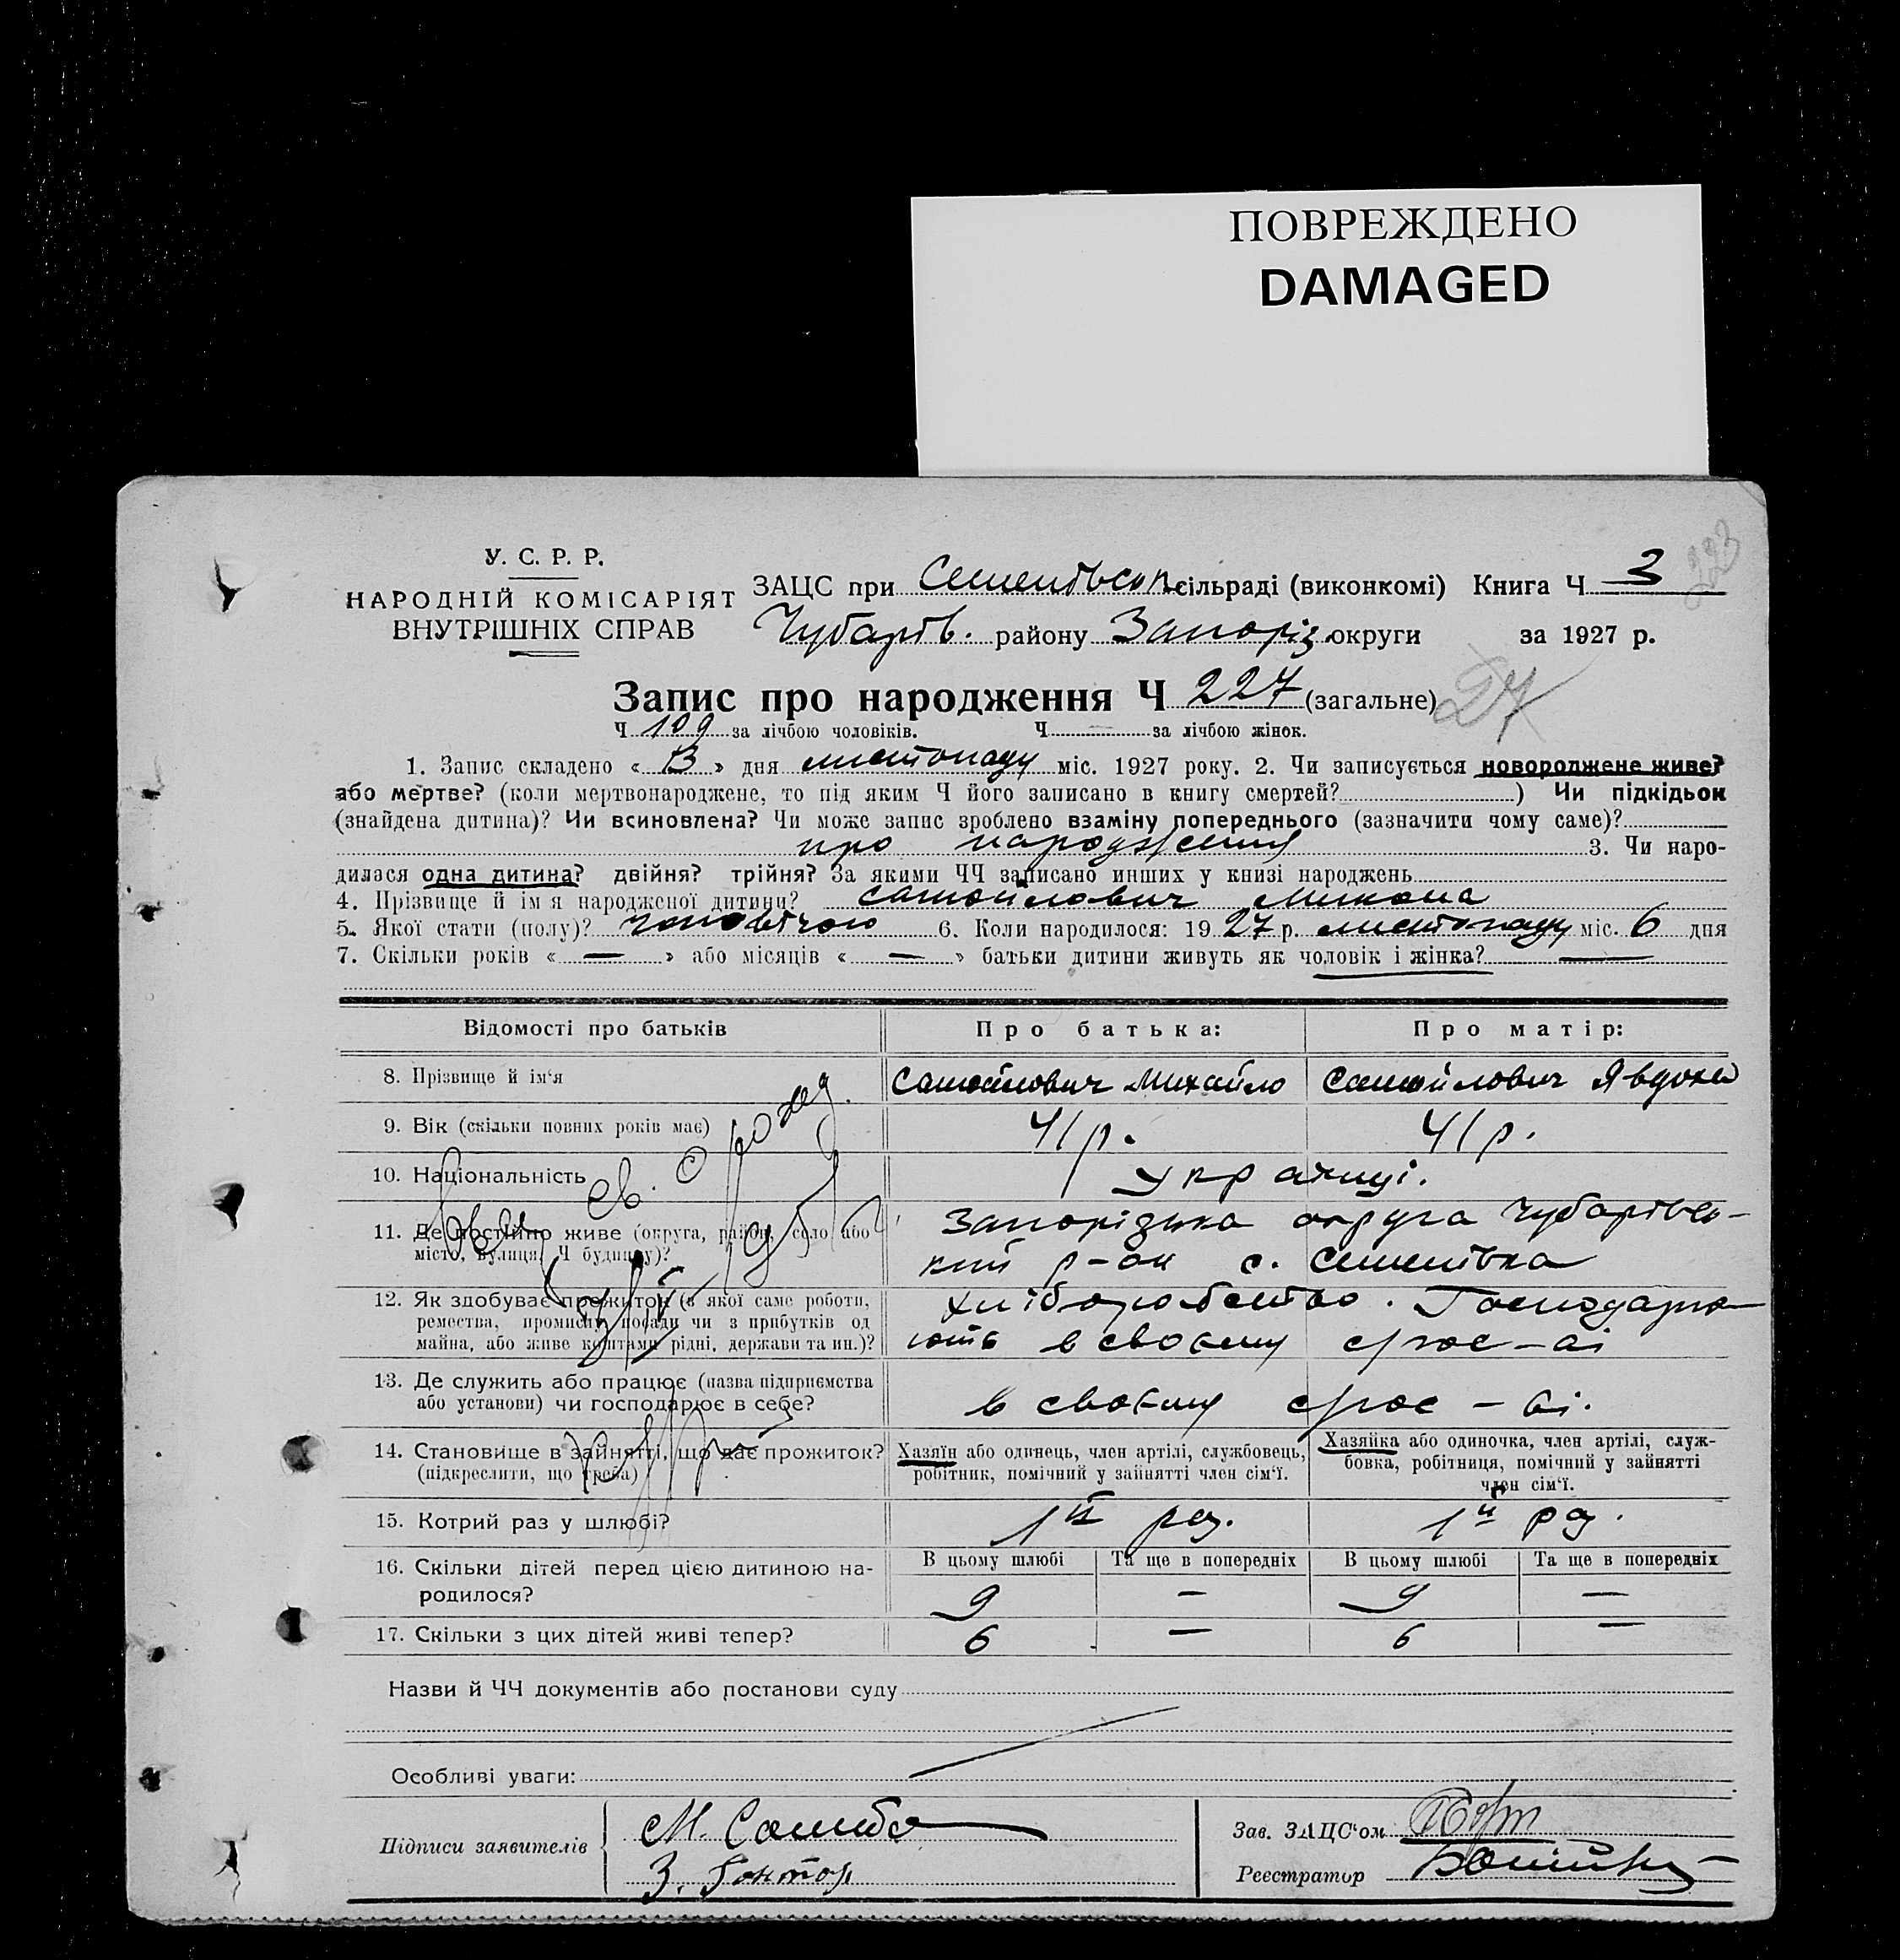 ПОВРЕЖДЕНО
DAMAGED
223
У. С. Р. Р.
НАРОДНІЙ КОМІСАРІЯТ
ВНУТРІШНІХ СПРАВ
ЗАЦС при Семенівськ. сільраді (виконкомі) Книга Ч 3
Чубарів. району Запоріз. округи за 1927 р.
Запис про народження Ч 227 (загальне) 27
Ч 109 за лічбою чоловіків. Ч — за лічбою жінок.
1. Запис складено « 13 » дня листопаду міс. 1927 року. 2. Чи записується новороджене живе?
або мертве? (коли мертвонароджене, то під яким Ч його записано в книгу смертей? ) Чи підкідьок
(знайдена дитина)? Чи всиновлена? Чи може запис зроблено взаміну попереднього (зазначити чому саме)?
про народження 3. Чи наро-
дилася одна дитина? двійня? трійня? За якими ЧЧ записано инших у книзі народжень
4. Прізвище й ім'я народженої дитини? Самойлович Микола
5. Якої стати (полу)? чоловічою 6. Коли народилося: 19 27 р. листопаду міс. 6 дня
7. Скільки років « — » або місяців « — » батьки дитини живуть як чоловік і жінка? —
Відомості про батьків Про батька: Про матір:
8. Прізвище й ім'я Самойлович Михайло Самойлович Явдоха
9. Вік (скільки повних років має) 41 р. 41 р.
10. Національність Українці.
11. Де постійно живе (округа, район, село або Запорізька округа Чубарівсь-
місто, вулиця, Ч будинку)? кий р-он с. Семенівка
12. Як здобуває прожиток (в якої саме роботи, хліборобство. Господарю-
ремества, промислу, посади чи з прибутків од
майна, або живе коштами рідні, держави та ин.)? ють в своєму
13. Де служить або працює (назва підприємства
або установи) чи господарює в себе? в своєму
14. Становище в зайнятті, що дає прожиток? Хазяїн або одинець, член артілі, службовець, Хазяйка або одиночка, член артілі, служ-
(підкреслити, що треба) робітник, помічний у зайнятті член сім'ї. бовка, робітниця, помічний у зайнятті
член сім'ї.
15. Котрий раз у шлюбі? 1й раз. 1й раз.
16. Скільки дітей перед цією дитиною на- В цьому шлюбі Та ще в попередніх В цьому шлюбі Та ще в попередніх
родилося? 9 — 9 —
17. Скільки з цих дітей живі тепер? 6 — 6 —
Назви й ЧЧ документів або постанови суду
Особливі уваги:
Підписи заявителів М.
З.
Зав. ЗАЦС'ом
Реєстратор